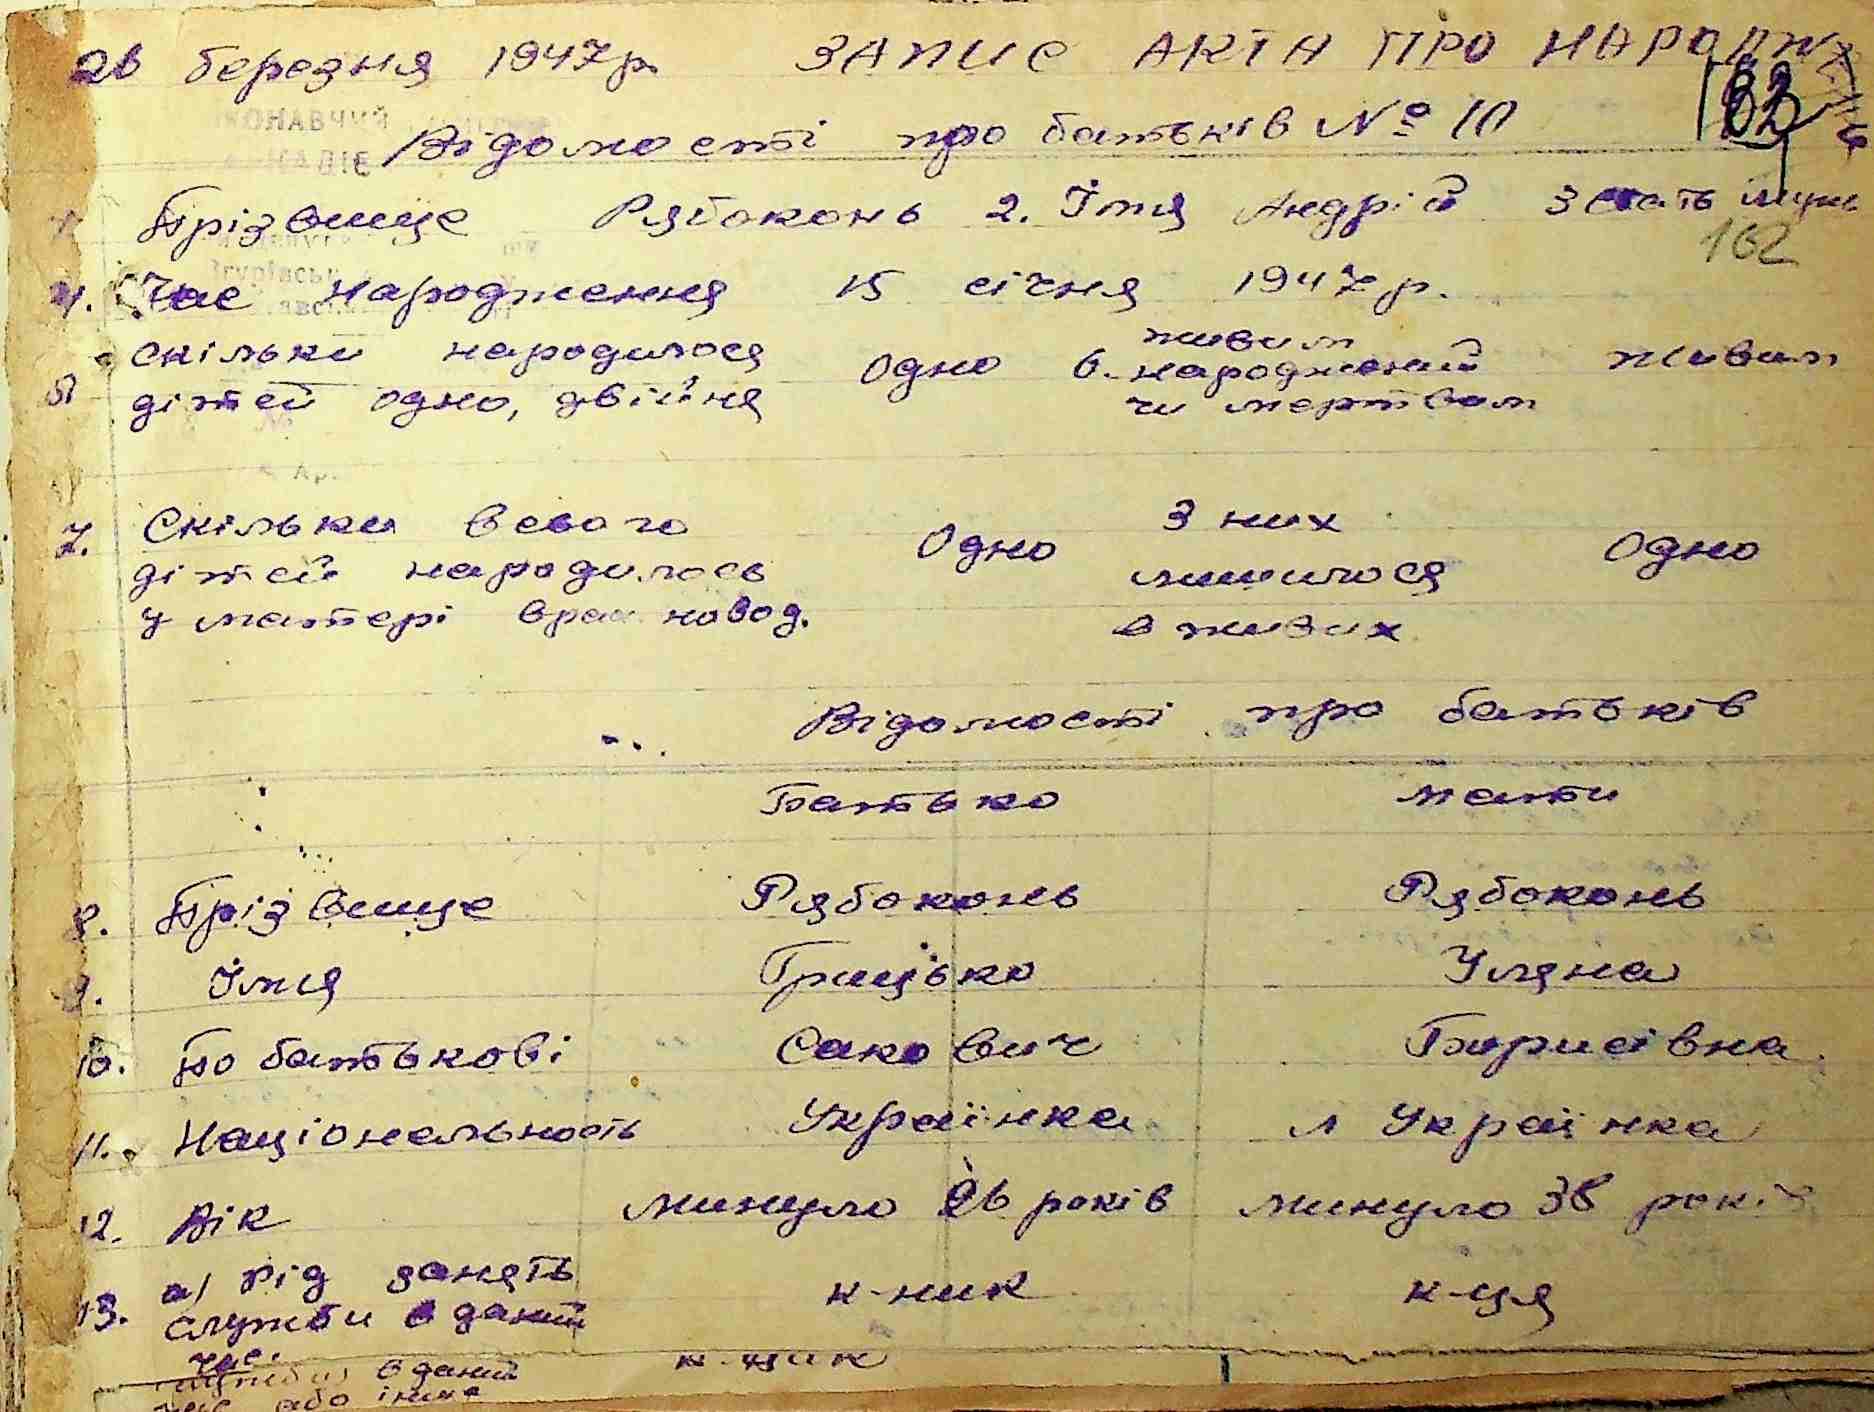 26 березня 1947р. ЗАПИС АКТА ПРО НАРОДЖ
Відомості про батьків № 10
1. Прізвище Рябоконь 2. Імя Андрій 3 стать
162
4. Час народження 15 січня 1947р.
5 скільки народилося дітей одно, двійня Одно 6. живим народжений чи мертвим живим
7. Скільки всього Одно З них Одно
дітей народилось лишилося
у матері враx новод. в живих
Відомості про батьків
Батько мати
8. Прізвище Рябоконь Рябоконь
9. Імя Грицько Уляна
10. По батькові Сакович Борисівна
11. Національность Українка Українка
12. Вік минуло 26 років минуло 38 років
13. а) рід занять к-ник к-ця
служби в даний
час.
в даний к-ник
час або інше